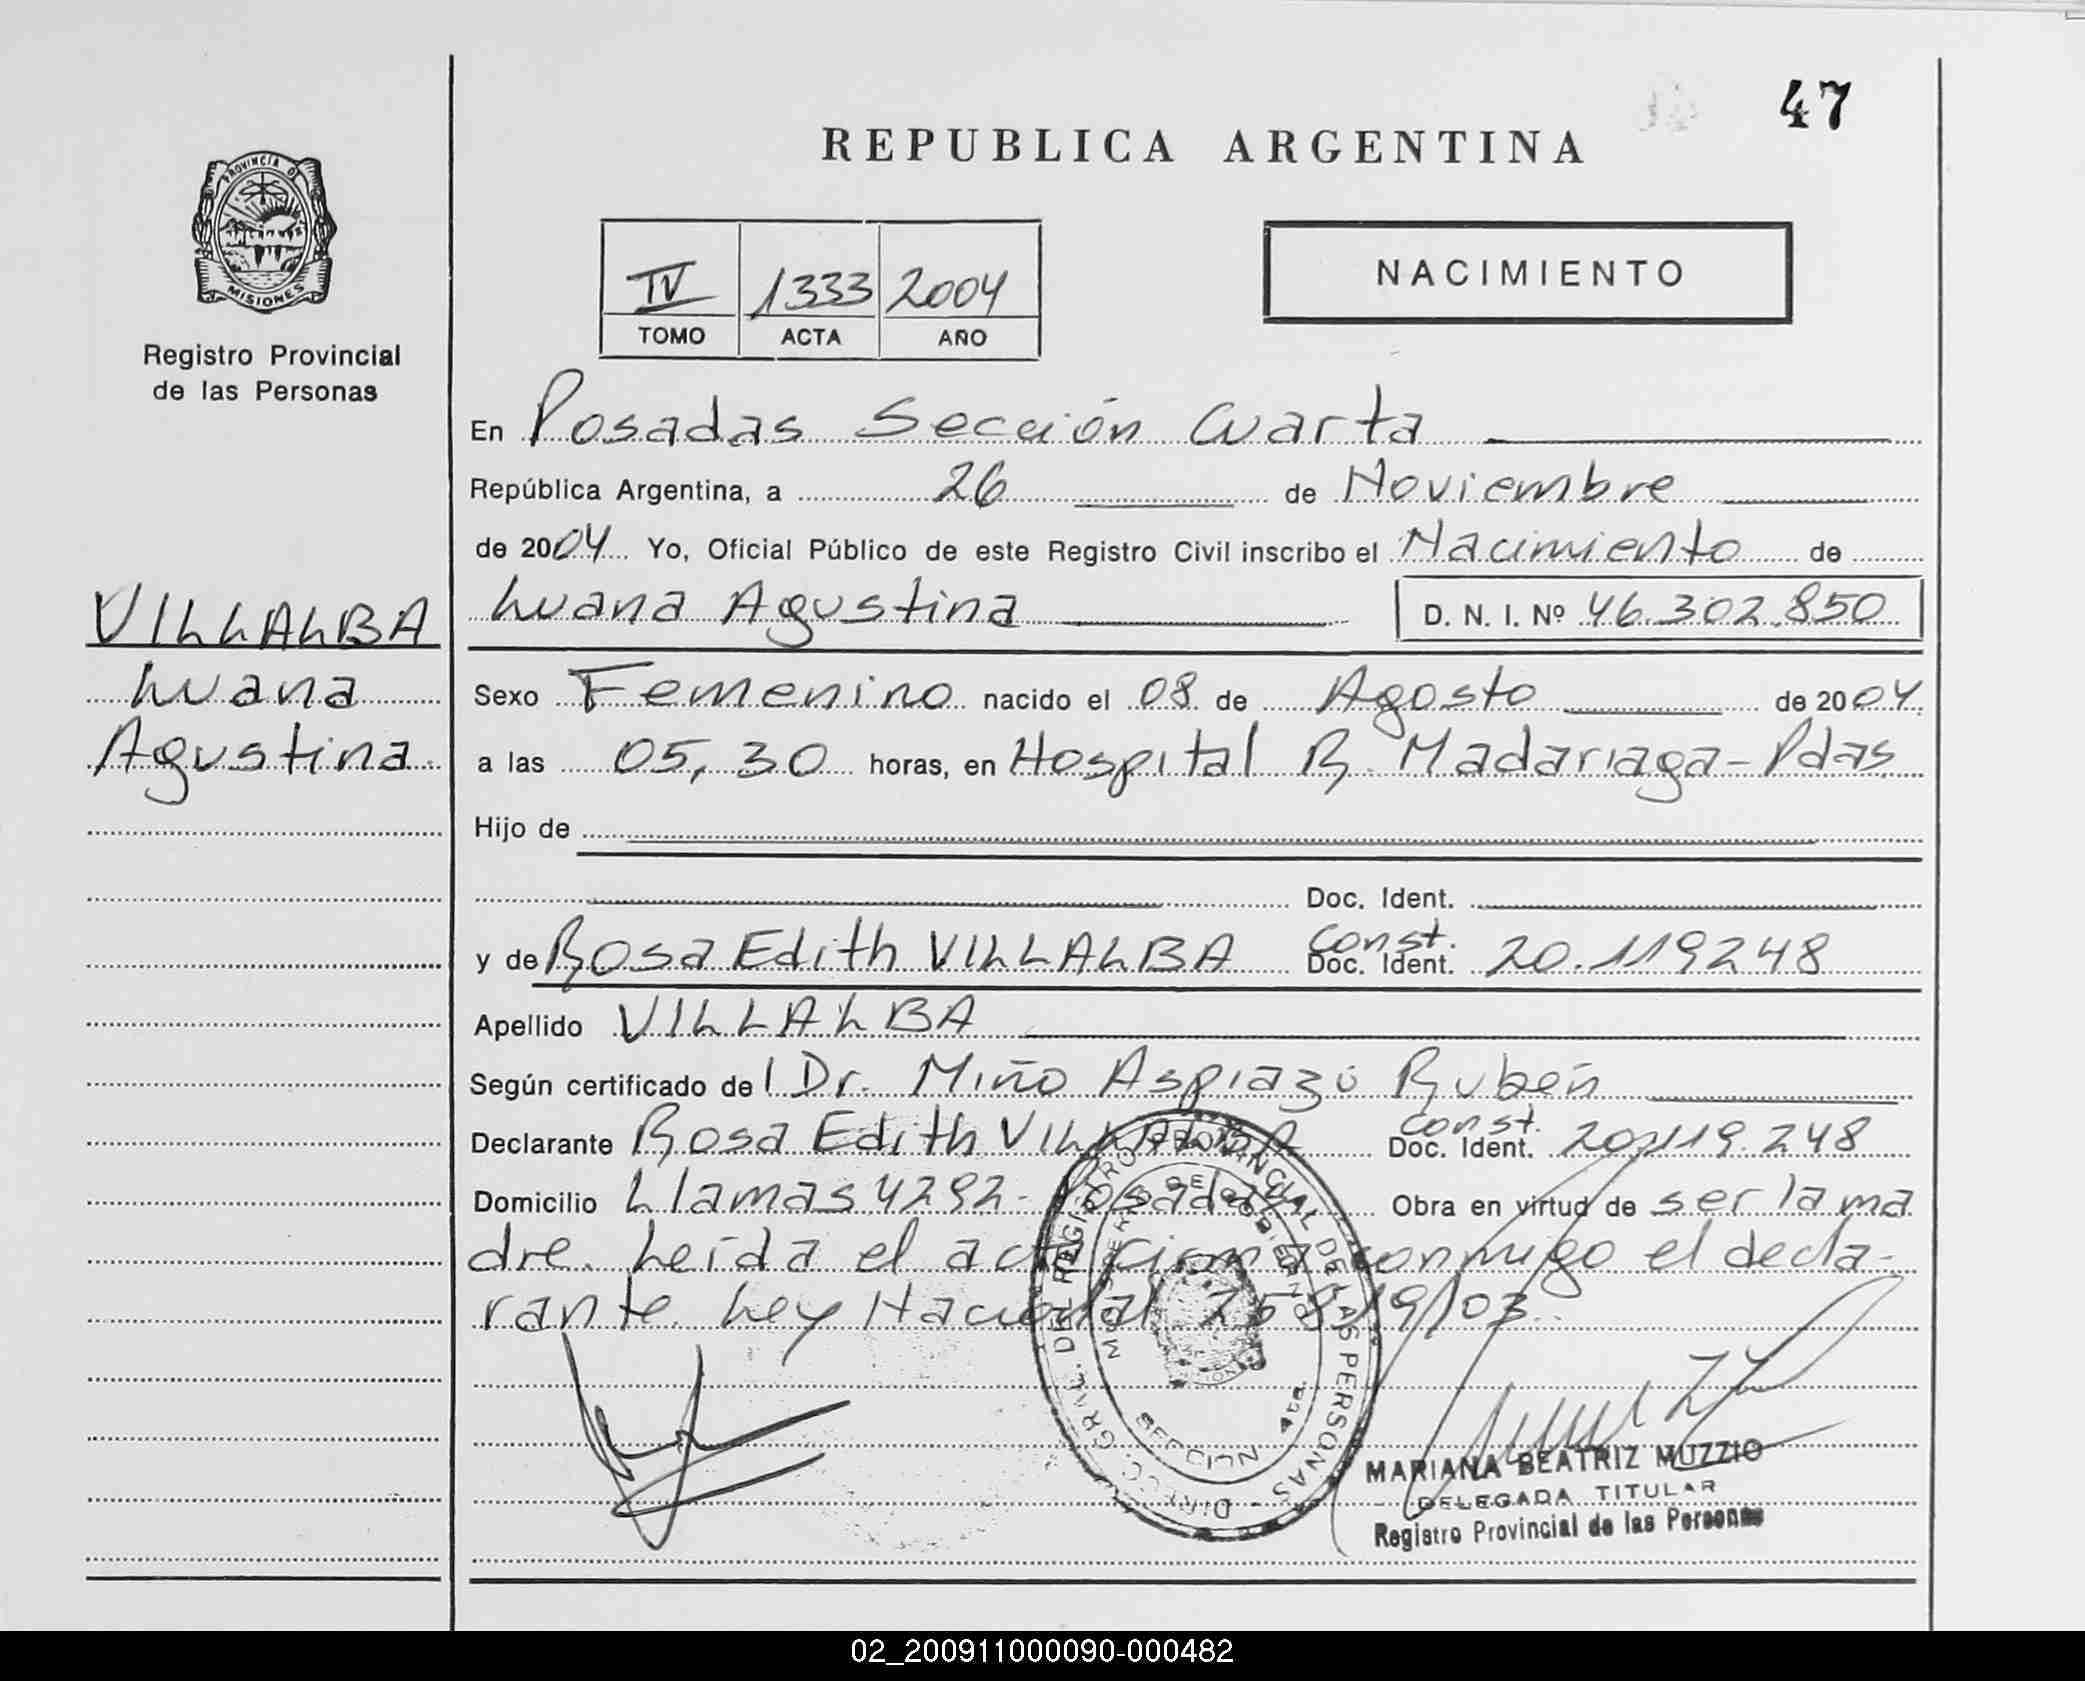 47
REPUBLICA ARGENTINA
PROVINCIA D
MISIONES
Registro Provincial
de las Personas
IV 1333 2004
TOMO ACTA AÑO
NACIMIENTO
En Posadas Sección Cuarta
República Argentina, a 26 de Noviembre
de 2004 Yo, Oficial Público de este Registro Civil inscribo el Nacimiento de
Luana Agustina D. N. I. Nº 46.302.850
VILLALBA
Luana
Agustina.
Sexo Femenino nacido el 08 de Agosto de 2004.
a las 05,30 horas, en Hospital R. Madariaga-Pdas
Hijo de
Doc. Ident.
y de Rosa Edith VILLALBA Const. Doc. Ident. 20.119248
Apellido VILLALBA
Según certificado de Dr. Miño Aspiazú Rubén
Declarante Rosa Edith VILLALBA Const. Doc. Ident. 20.119.248
Domicilio Llamas 4292- Posadas. Obra en virtud de ser la ma
dre. Leída el acta firma conmigo el decla-
rante. Ley Nacional 25819/03.
DIRECC. GRAL. DEL REGISTRO PROVINCIAL DE LAS PERSONAS -
MINISTERIO DE GOBIERNO
SECCION 4ta.
MARIANA BEATRIZ MUZZIO
DELEGADA TITULAR
Registro Provincial de las Personas
02_200911000090-000482